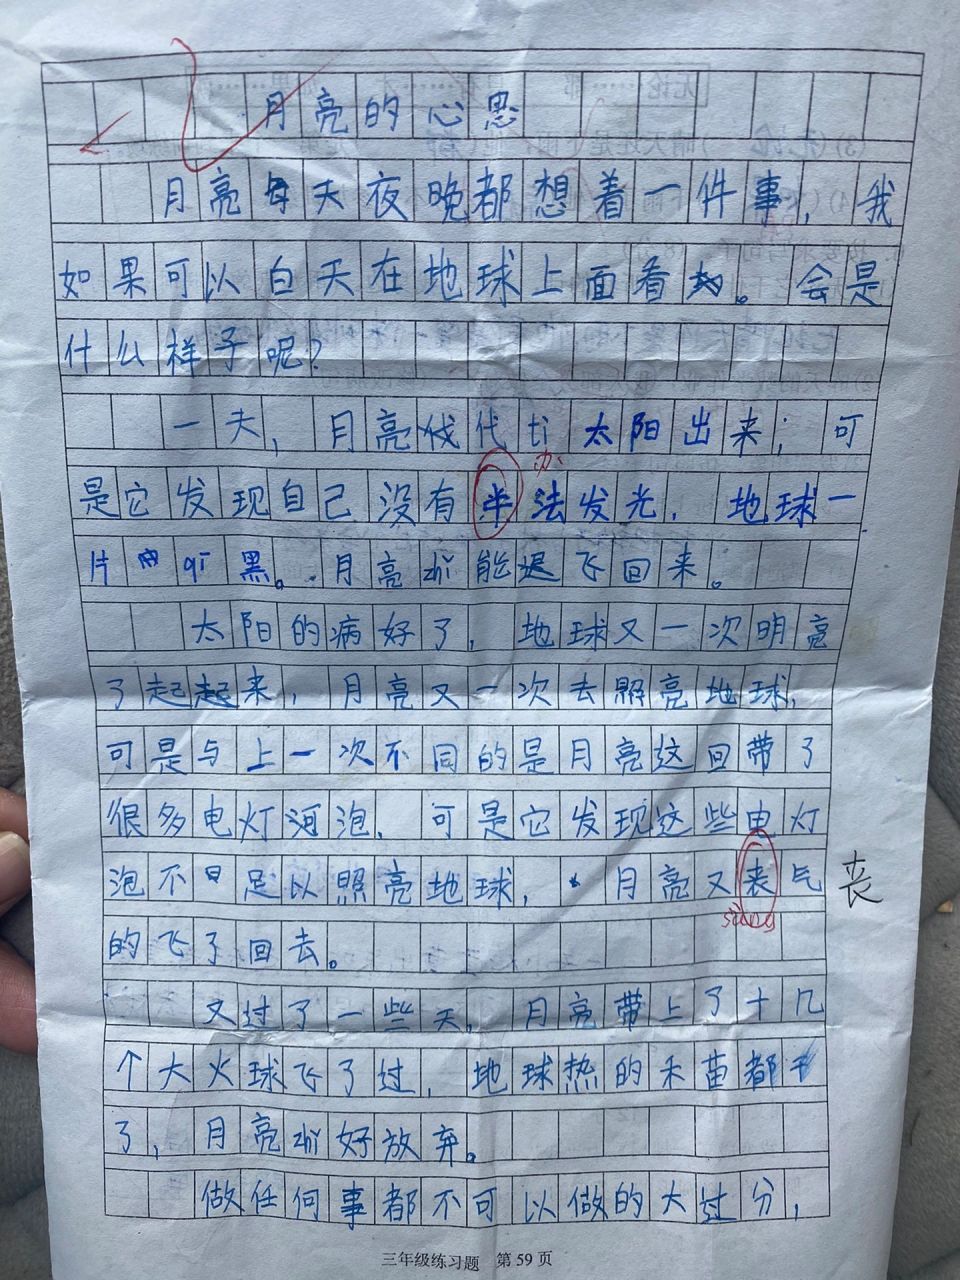 月亮的心思
月亮每天夜晚都想着一件事，我
如果可以白天在地球上面看。会是
什么样子呢？
一天，月亮代tì太阳出来；可
办
是它发现自己没有半法发光，地球一
片qī黑。月亮zhǐ能飞回来。
太阳的病好了，地球又一次明亮
了起来，月亮又一次去照亮地球，
可是与上一次不同的是月亮这回带了
很多电灯泡，可是它发现这些电灯
泡不足以照亮地球，月亮又丧气
丧
sàng
的飞了回去。
又过了一些天，月亮带上了十几
个大火球飞了过，地球热的禾苗都
了，月亮zhǐ好放弃。
做任何事都不可以做的太过分，
三年级练习题 第59页